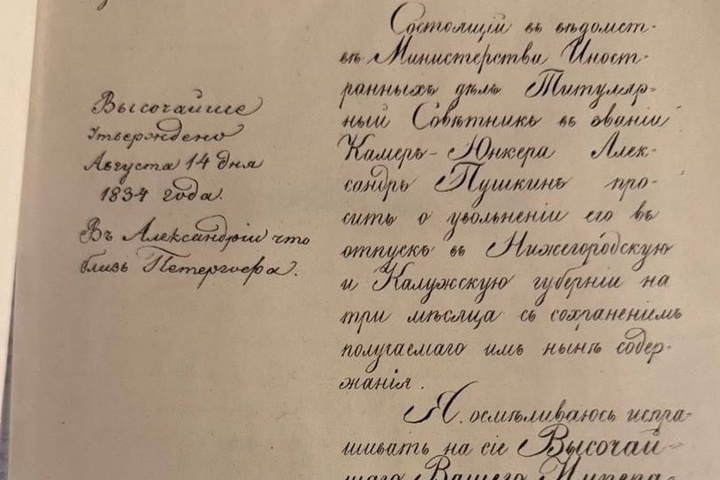 Высочайше
Утверждено
Августа 14 дня
1834 года.
Въ Александріи что
близь Петергофа.
Состоящій въ вѣдомст-
вѣ Министерства Иност-
ранныхъ дѣлъ Титуляр-
ный Совѣтникъ въ званіи
Камеръ-Юнкера Алек-
сандръ Пушкинъ про-
ситъ о увольненіи его въ
отпускъ въ Нижегородскую
и Калужскую губерніи на
три мѣсяца съ сохраненіемъ
получаемаго имъ нынѣ содер-
жанія.
Я осмѣливаюсь испра-
шивать на сіе Высочай-
шаго Вашего Импера-